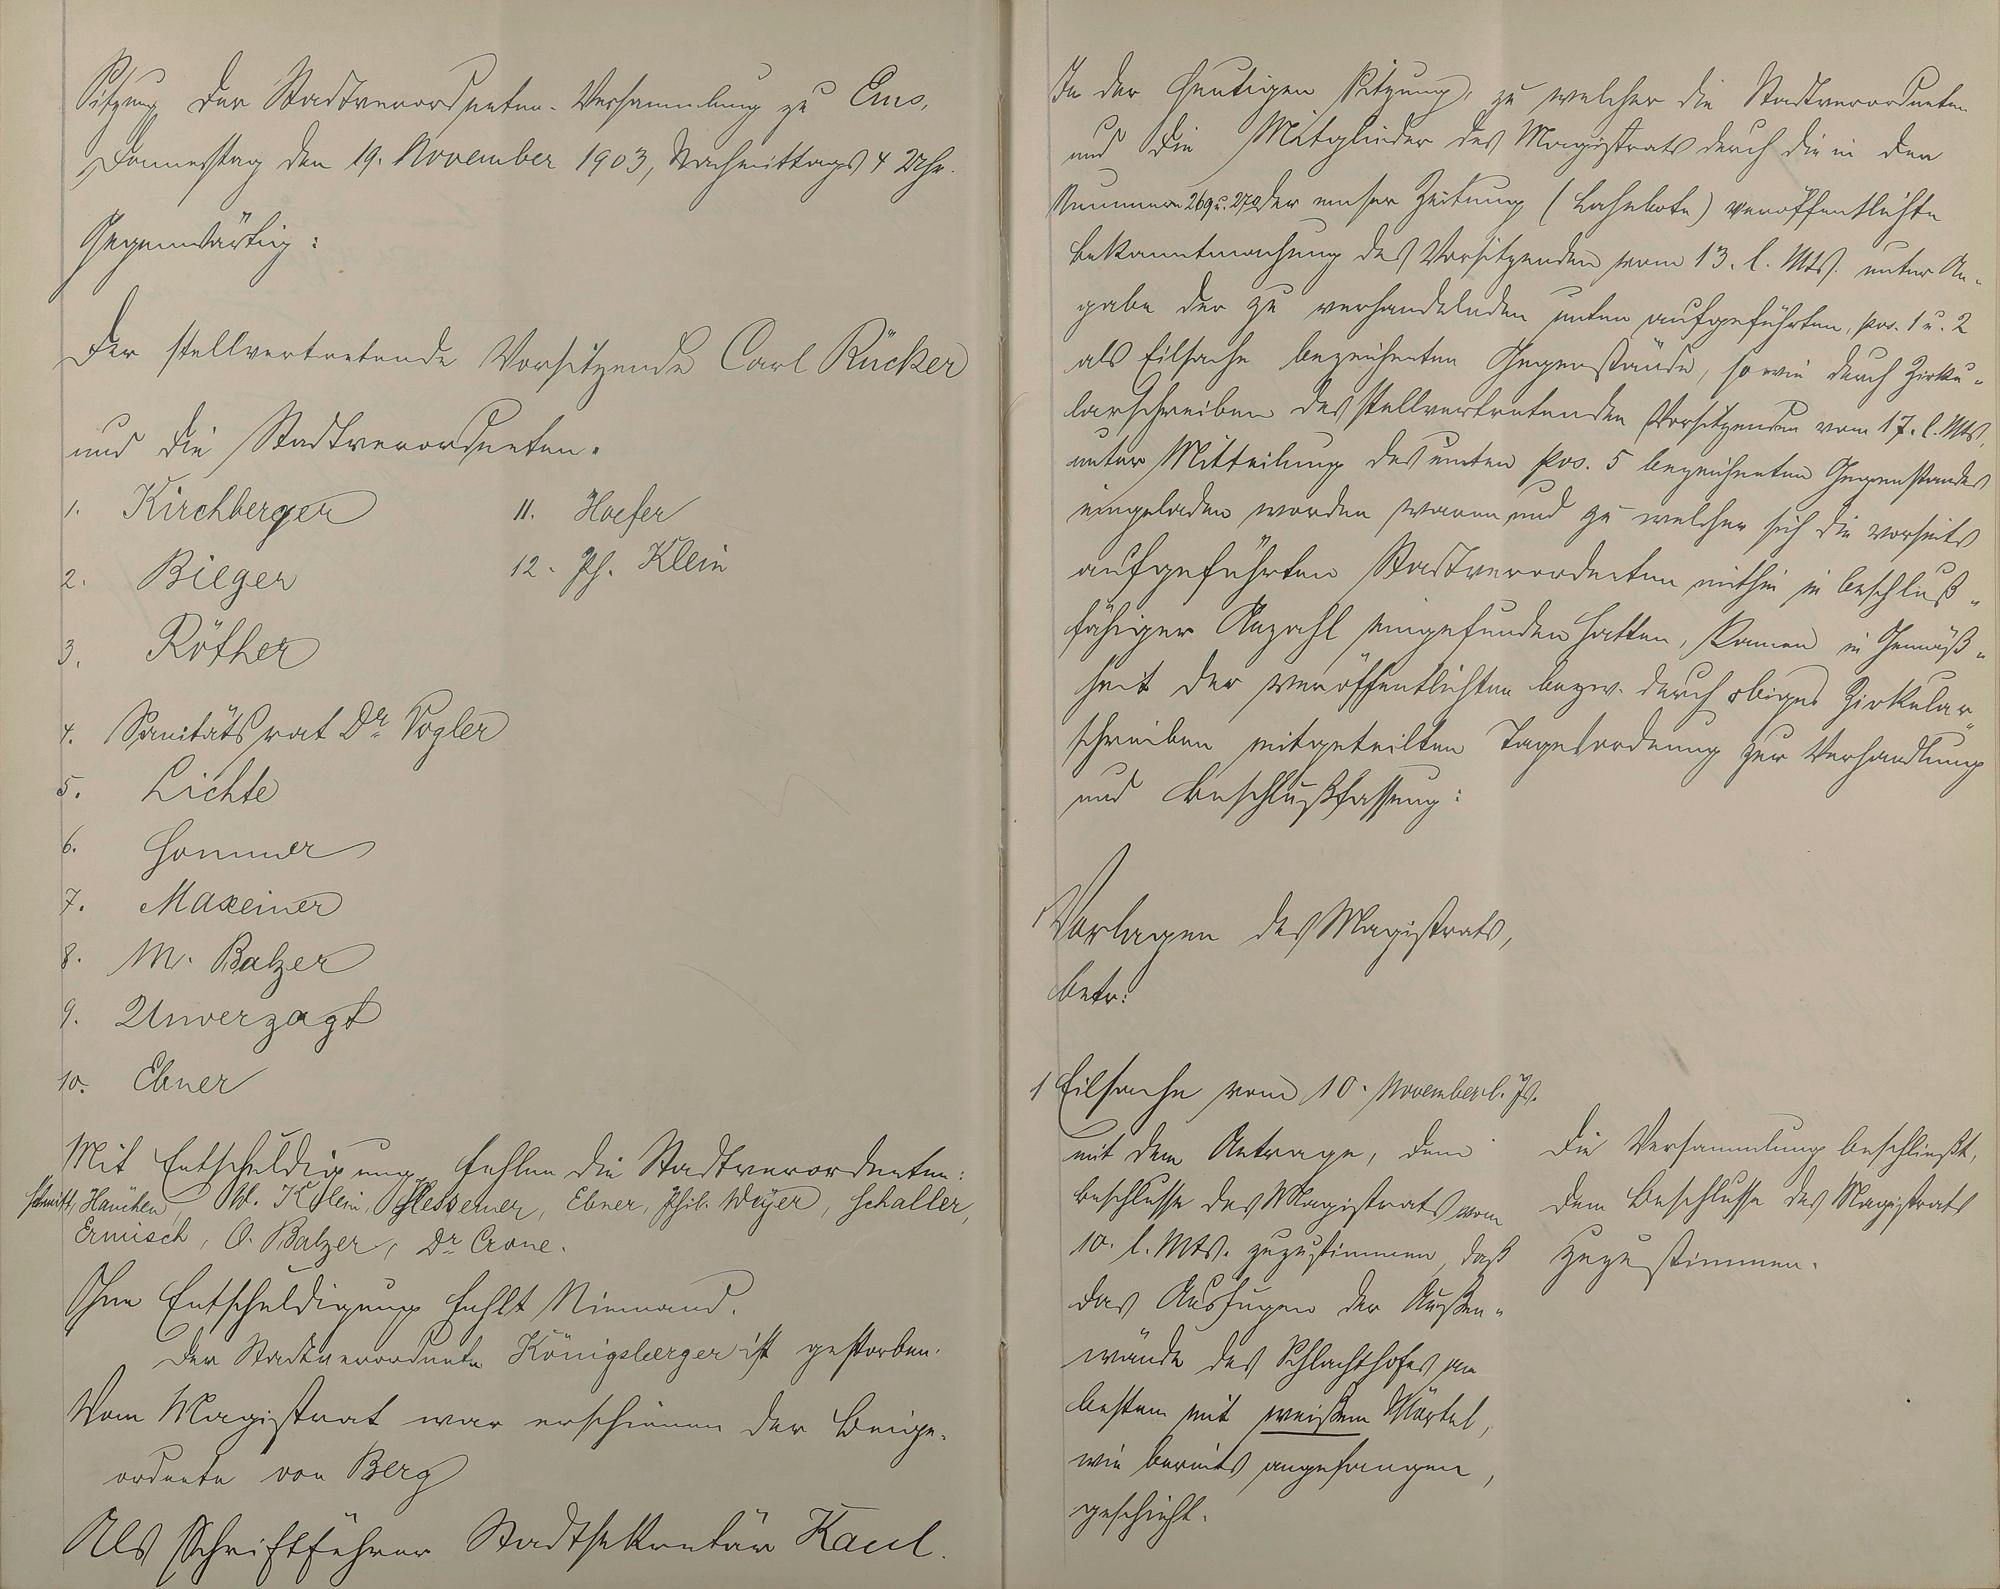 Sitzung der Stadtverordneten-Versammlung zu Ems,
Donnerstag den 19. November 1903, Nachmittags 4 Uhr.
Gegenwärtig:
Der stellvertretende Vorsitzende Carl Rücker
und die Stadtverordneten.
1. Kirchberger
2. Bieger
3. Röther
4. Sanitätsrat Dr. Vogler
5. Lichte
6. Sommer
7. Maxeiner
8. M. Balzer
9. Unverzagt
10. Ebner
11. Hoefer
12. Ph. Klein
Mit Entschuldigung fehlen die Stadtverordneten:
Schmitt, Häuchen, W. Klein, Flesserner, Ebner, Phil. Weyer, Schaller,
Ermisch, O. Balzer, Dr. Crone.
Ohne Entschuldigung fehlt Niemand.
Der Stadtverordnete Königsberger ist gestorben.
Vom Magistrat war erschienen der Beige-
ordnete von Berg
Als Schriftführer Stadtsekretär Kaul.
In der heutigen Sitzung, zu welcher die Stadtverordneten
und die Mitglieder des Magistrats durch die in den
Nummern 269 u. 270 der emser Zeitung (Lahnbote) veröffentlichte
Bekanntmachung des Vorsitzenden vom 13. l. Mts. unter An-
gabe der zu verhandelnden unten aufgeführten, pos. 1 u. 2
als Eilsache bezeichneten Gegenstände, sowie durch Zirku-
larschreiben des stellvertretenden Vorsitzenden vom 17. l. Mts.
unter Mitteilung des unten pos. 5 bezeichneten Gegenstandes
eingeladen worden waren und zu welcher sich die vorseits
aufgeführten Stadtverordneten mithin in beschluß-
fähiger Anzahl eingefunden hatten, kamen in Gemäß-
heit der veröffentlichten bezw. durch obiges Zirkular-
schreiben mitgeteilten Tagesordnung zur Verhandlung
und Beschlußfassung:
Vorlagen des Magistrats,
betr:
1 Eilsache vom 10. November l. Js.
mit dem Antrage, dem
Beschlusse des Magistrats vom
10. l. Mts. zuzustimmen, daß
das Ausfugen der Außen-
wände des Schlachthofes am
besten mit weißem Mörtel,
wie bereits angefangen,
geschieht.
Die Versammlung beschließt,
dem Beschlusse des Magistrats
zuzustimmen.